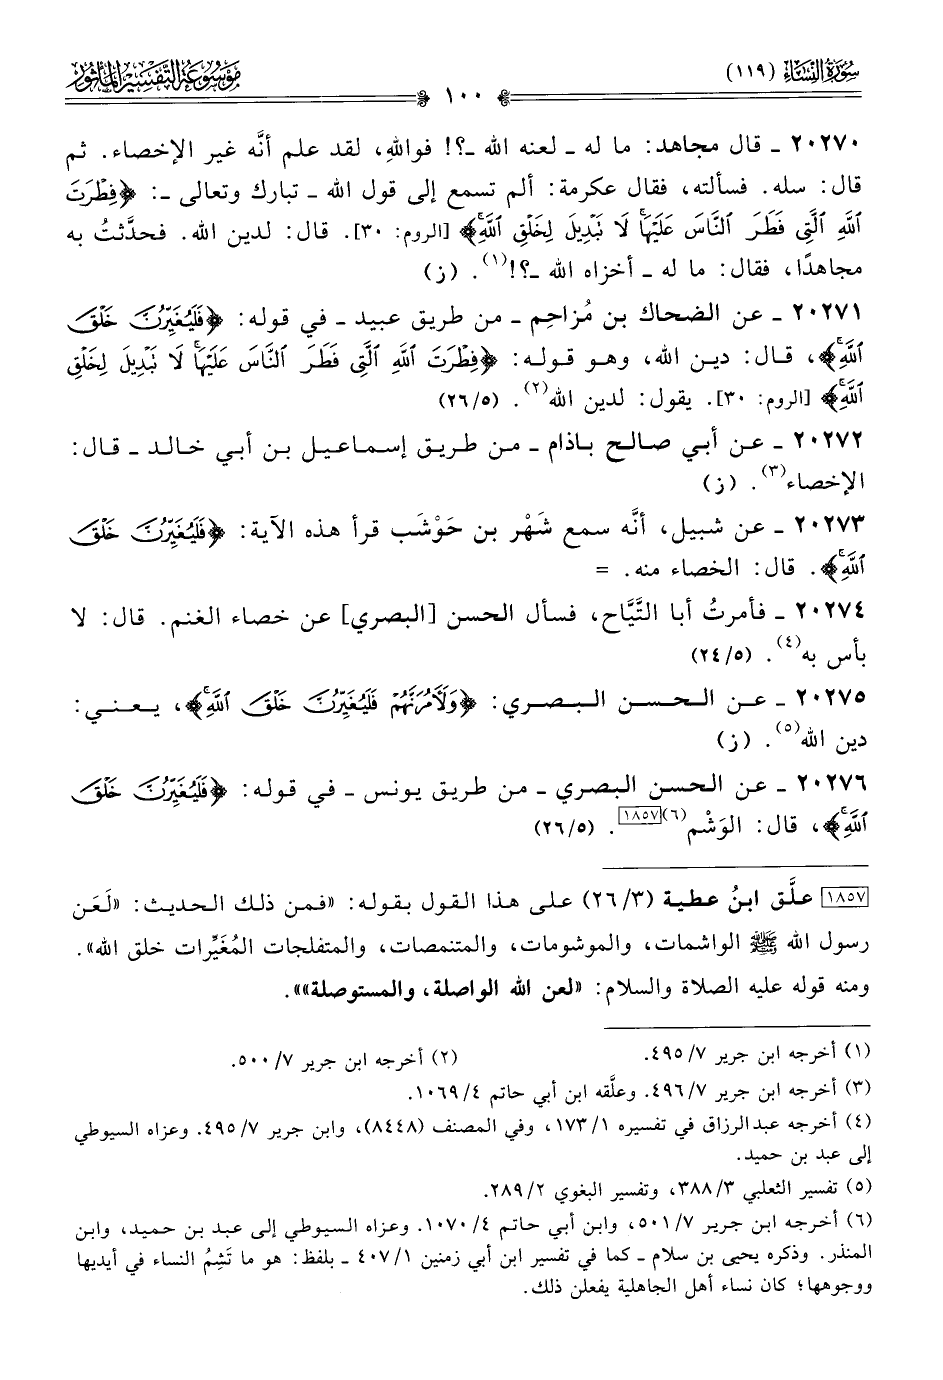 سُورَةُ النِّسَاءِ (١١٩)
مَوْسُوعَةُ التَّفْسِيرِ المَأْثُورِ
١٠٠
٢٠٢٧٠ ـ قال مجاهد: ما له ـ لعنه الله ـ؟! فواللهِ، لقد علم أنَّه غير الإخصاء. ثم
قال: سله. فسألته، فقال عكرمة: ألم تسمع إلى قول الله ـ تبارك وتعالى ـ: ﴿فِطْرَتَ
ٱللَّهِ ٱلَّتِى فَطَرَ ٱلنَّاسَ عَلَيْهَاۚ لَا تَبْدِيلَ لِخَلْقِ ٱللَّهِۚ﴾ [الروم: ٣٠]. قال: لدين الله. فحدَّثتُ به
مجاهدًا، فقال: ما له ـ أخزاه الله ـ؟!(١). (ز)
٢٠٢٧١ ـ عن الضحاك بن مُزاحِم ـ من طريق عبيد ـ في قوله: ﴿فَلَيُغَيِّرُنَّ خَلْقَ
ٱللَّهِۚ﴾، قال: دين الله، وهو قوله: ﴿فِطْرَتَ ٱللَّهِ ٱلَّتِى فَطَرَ ٱلنَّاسَ عَلَيْهَاۚ لَا تَبْدِيلَ لِخَلْقِ
ٱللَّهِۚ﴾ [الروم: ٣٠]. يقول: لدين الله(٢). (٢٦/٥)
٢٠٢٧٢ ـ عن أبي صالح باذام ـ من طريق إسماعيل بن أبي خالد ـ قال:
الإخصاء(٣). (ز)
٢٠٢٧٣ ـ عن شبيل، أنَّه سمع شَهْر بن حَوْشَب قرأ هذه الآية: ﴿فَلَيُغَيِّرُنَّ خَلْقَ
ٱللَّهِۚ﴾. قال: الخصاء منه. =
٢٠٢٧٤ ـ فأمرتُ أبا التَّيَّاح، فسأل الحسن [البصري] عن خصاء الغنم. قال: لا
بأس به(٤). (٢٤/٥)
٢٠٢٧٥ ـ عن الحسن البصري: ﴿وَلَآمُرَنَّهُمْ فَلَيُغَيِّرُنَّ خَلْقَ ٱللَّهِۚ﴾، يعني:
دين الله(٥). (ز)
٢٠٢٧٦ ـ عن الحسن البصري ـ من طريق يونس ـ في قوله: ﴿فَلَيُغَيِّرُنَّ خَلْقَ
ٱللَّهِۚ﴾، قال: الوَشْم(٦)[١٨٥٧]. (٢٦/٥)
[١٨٥٧] علَّق ابنُ عطية (٢٦/٣) على هذا القول بقوله: «فمن ذلك الحديث: «لَعَن
رسول الله ﷺ الواشمات، والموشومات، والمتنمصات، والمتفلجات المُغَيِّرات خلق الله».
ومنه قوله عليه الصلاة والسلام: «لعن الله الواصلة، والمستوصلة»».
(١) أخرجه ابن جرير ٤٩٥/٧. (٢) أخرجه ابن جرير ٥٠٠/٧.
(٣) أخرجه ابن جرير ٤٩٦/٧. وعلَّقه ابن أبي حاتم ١٠٦٩/٤.
(٤) أخرجه عبدالرزاق في تفسيره ١٧٣/١، وفي المصنف (٨٤٤٨)، وابن جرير ٤٩٥/٧. وعزاه السيوطي
إلى عبد بن حميد.
(٥) تفسير الثعلبي ٣٨٨/٣، وتفسير البغوي ٢٨٩/٢.
(٦) أخرجه ابن جرير ٥٠١/٧، وابن أبي حاتم ١٠٧٠/٤. وعزاه السيوطي إلى عبد بن حميد، وابن
المنذر. وذكره يحيى بن سلام ـ كما في تفسير ابن أبي زمنين ٤٠٧/١ ـ بلفظ: هو ما تَشِمُ النساء في أيديها
ووجوهها؛ كان نساء أهل الجاهلية يفعلن ذلك.